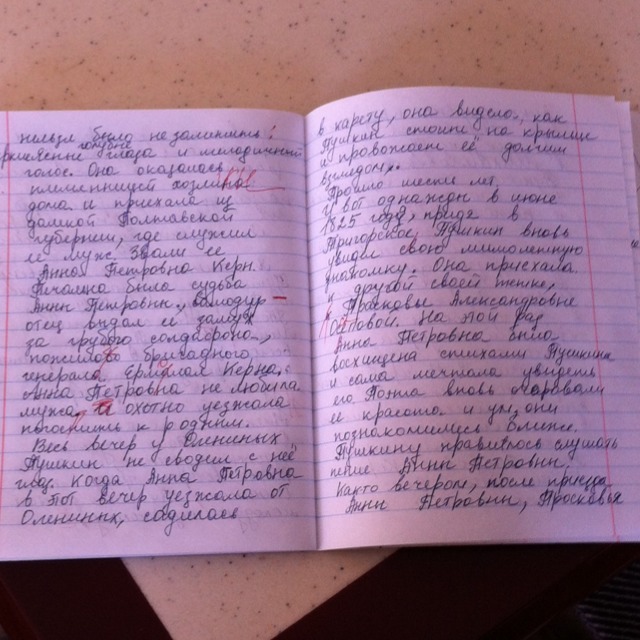 нельзя было не запомнить!
голубые
глаза и мелодичный
голос. Она оказалась
племянницей хозяина
дома и приехала из
далкой Полтавской
губернии, где служил
её муж. Звали её
Анна Петровна Керн.
Печальна была судьба
Анны Петровны,
отец выдал её замуж
за грубого солдафона,
пожилого бригадного
генерала Ермолая Керна.
Анна Петровна не любила
мужа, и охотно уезжала
погостить к родным.
Весь вечер у Олениных,
Пушкин не сводил с неё
глаз. Когда Анна Петровна
в этот вечер уезжала от
Олениных, садилась
в карету, она видела, как
Пушкин стоит на крыльце
и провожает её долгим
взглядом.
Прошло шесть лет
И вот однажды в июне
1825 года, придя в
Тригорское, Пушкин вновь
увидел свою мимолетную
знакомку. Она приехала
к другой своей тётке,
Прасковье Александровне
Осиповой. На этот раз
Анна Петровна была
восхищена стихами Пушкина
и сама мечтала увидеть
его. Поэта вновь очаровали
её красота и ум, они
познакомились ближе.
Пушкину нравилось слушать
пение Анны Петровны.
Както вечером, после приезда
Анны Петровны, Просковья